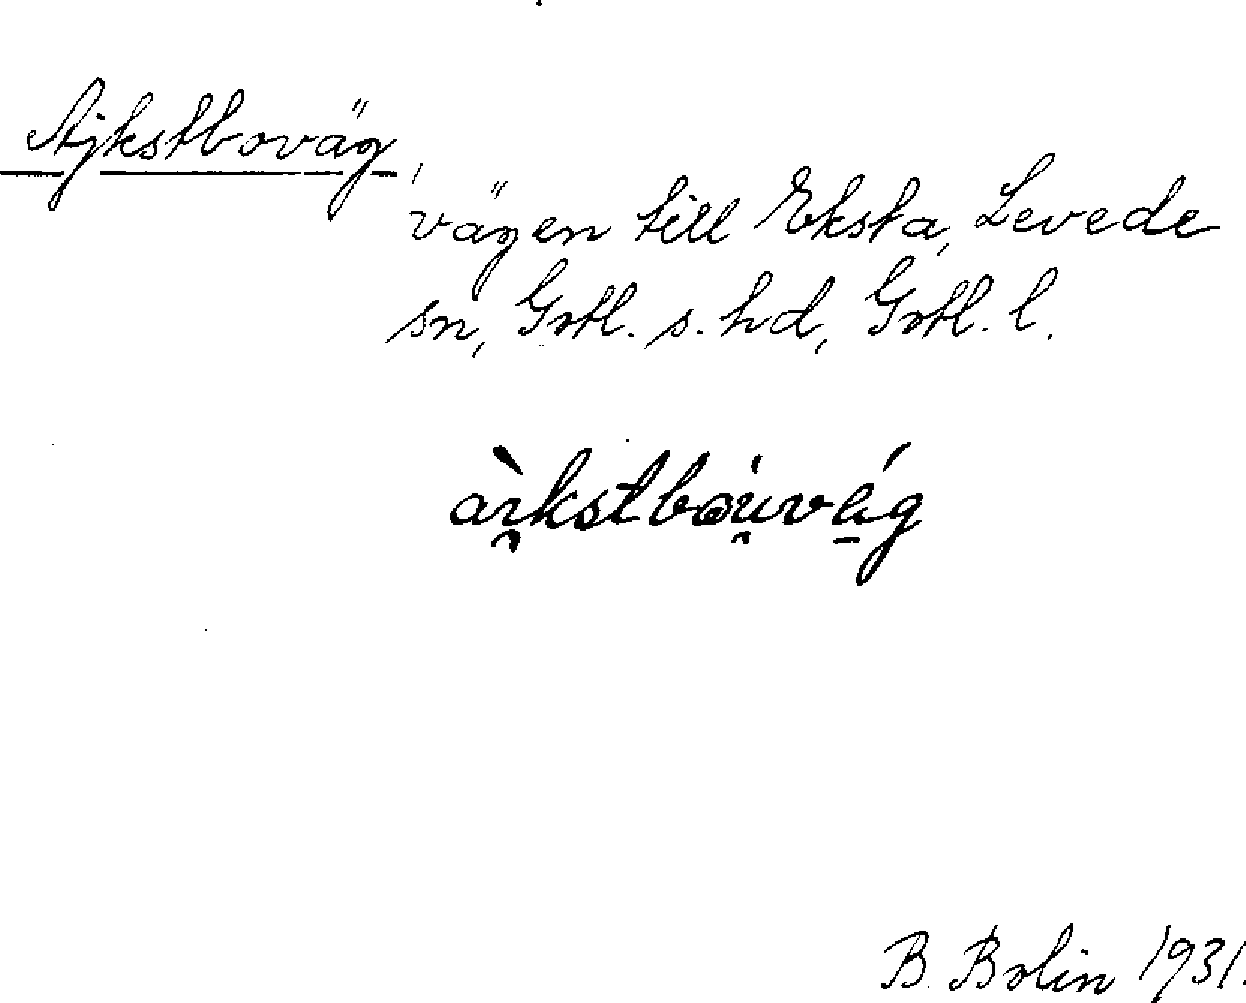 Ajkstboväg,
vägen till Eksta, Levede
sn, Gotl. s. hd, Gotl. l.
B. Bolin 1931.